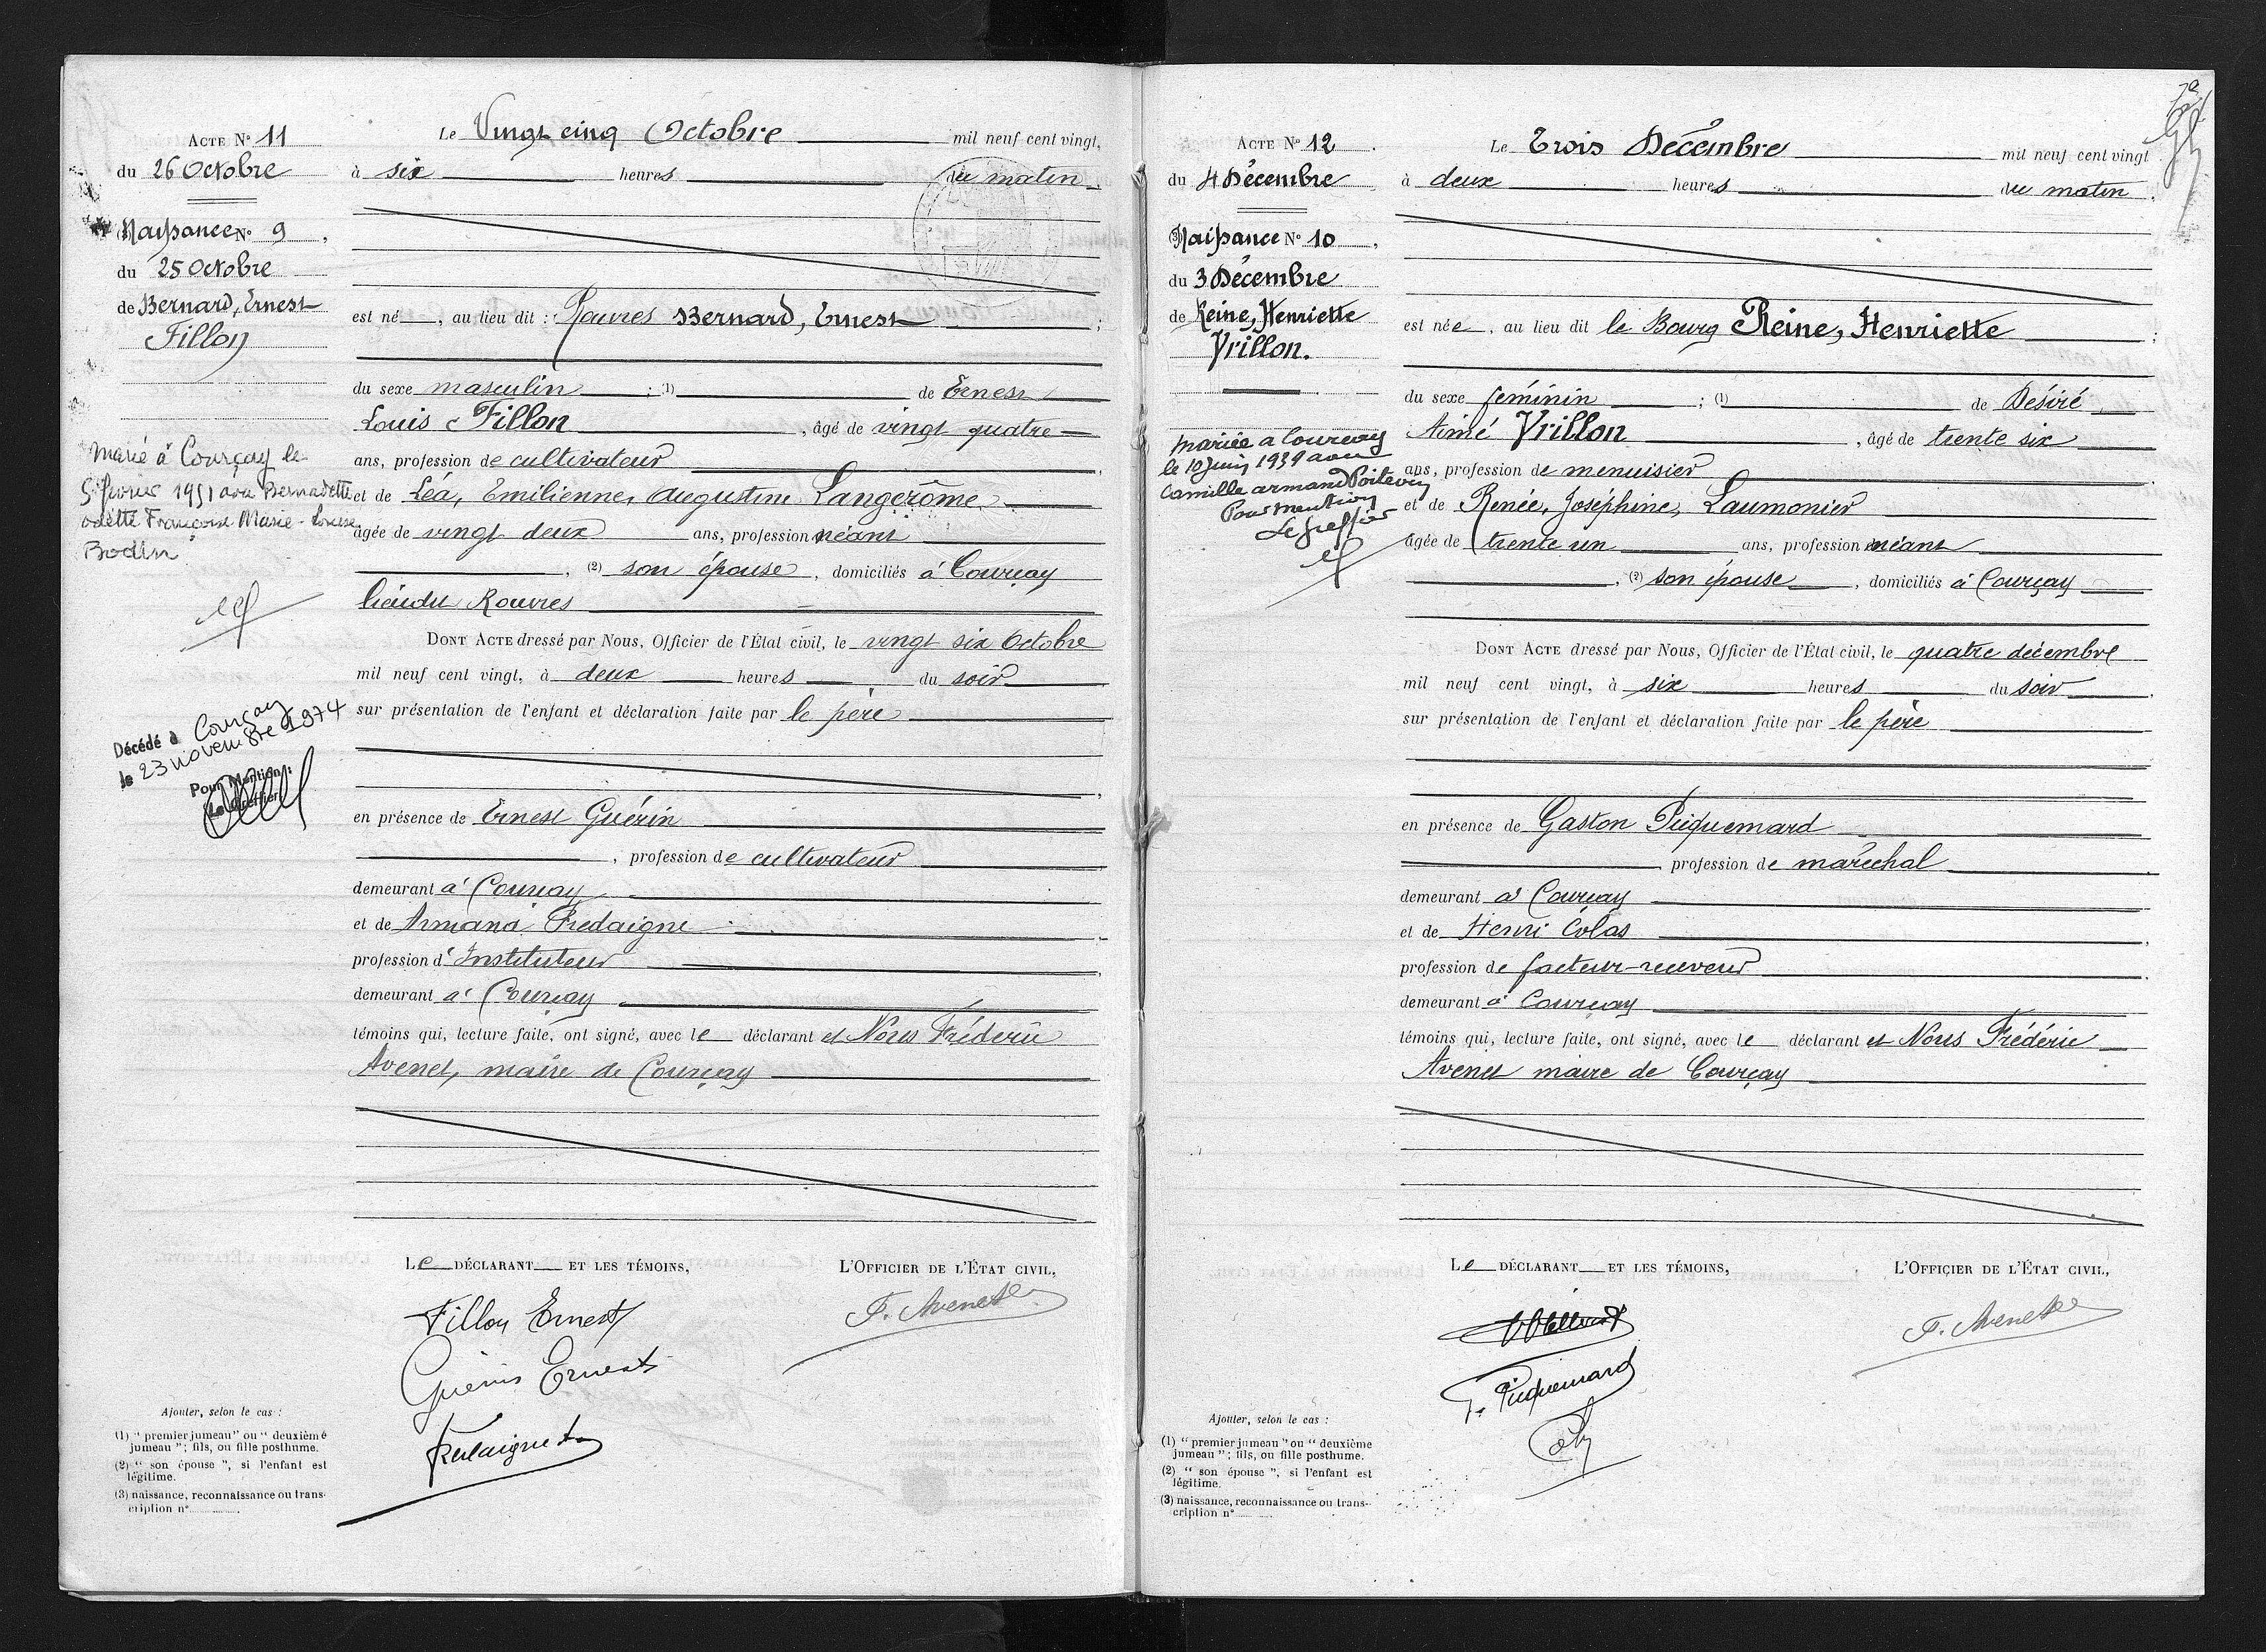 Acte N° 11
du 26 Octobre
Naissance N° 9
du 25 Octobre
de Bernard, Ernest
Fillon
Marié à Courçay le
5 février 1951 avec Bernadette
Odette Françoise Marie-Louise
Bodin
Décédé à Courçay
le 23 novembre 1974
Pour Mention :
Le Greffier
Le Vingt cinq Octobre mil neuf cent vingt,
à six heures du matin
est né, au lieu dit : Rouvres Bernard, Ernest ;
du sexe masculin ; (1) de Ernest
Louis Fillon, âgé de vingt quatre
ans, profession de cultivateur
et de Léa, Emilienne, Augustine Langerôme
âgée de vingt deux ans, profession néant
, (2) son épouse, domiciliés à Courçay
lieudit Rouvres
Dont Acte dressé par Nous, Officier de l'État civil, le vingt six Octobre
mil neuf cent vingt, à deux heures du soir
sur présentation de l'enfant et déclaration faite par le père
en présence de Ernest Guérin
, profession de cultivateur
demeurant à Courçay
et de Armand Fredaigne
profession d'Instituteur
demeurant à Courçay
témoins qui, lecture faite, ont signé, avec le déclarant et Nous Frédéric
Avenet, maire de Courçay
Le déclarant et les témoins,
L'Officier de l'État civil,
Fillon Ernest
F. Avenet
Guérin Ernest
Fredaigne
Ajouter, selon le cas :
(1) "premier jumeau" ou "deuxième
jumeau"; fils, ou fille posthume.
(2) "son épouse", si l'enfant est
légitime.
(3) naissance, reconnaissance ou trans-
cription n°
Acte N° 12
du 4 Décembre
(3) Naissance N° 10
du 3 Décembre
de Reine, Henriette
Vrillon.
mariée à Courçay
le 10 juin 1939 avec
Camille Armand Poitevin
Pour mention
Le Greffier
Le Trois Décembre mil neuf cent vingt
à deux heures du matin
est née, au lieu dit le Bourg Reine, Henriette ;
du sexe féminin ; (1) de Désiré
Aimé Vrillon, âgé de trente six
ans, profession de menuisier
et de Renée, Joséphine, Laumonier
âgée de trente un ans, profession néant
, (2) son épouse, domiciliés à Courçay
Dont Acte dressé par Nous, Officier de l'État civil, le quatre décembre
mil neuf cent vingt, à six heures du soir
sur présentation de l'enfant et déclaration faite par le père
en présence de Gaston Piquemard
profession de maréchal
demeurant à Courçay
et de Henri Colas
profession de facteur-receveur
demeurant à Courçay
témoins qui, lecture faite, ont signé, avec le déclarant et Nous Frédéric
Avenet maire de Courçay
Le déclarant et les témoins,
L'Officier de l'État civil,
F. Avenet
G. Piquemard
Ajouter, selon le cas :
(1) "premier jumeau" ou "deuxième
jumeau"; fils, ou fille posthume.
(2) "son épouse", si l'enfant est
légitime.
(3) naissance, reconnaissance ou trans-
cription n°